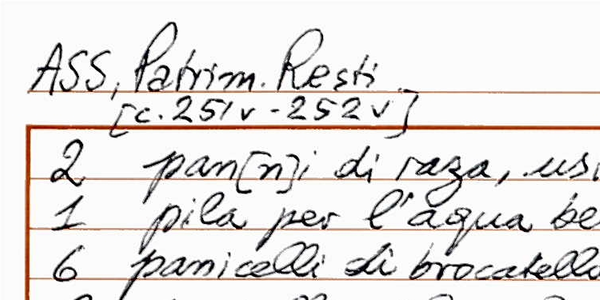 ASS, Patrim. Resti
[c. 251v - 252v]
2 pan[n]i di raza, usi
1 pila per l'aqua be
6 panicelli di brocatello